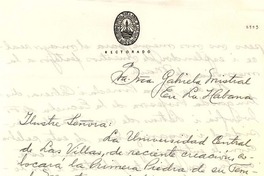 RECTORADO
Dra. Gabriela Mistral
En La Habana
Ilustre Señora:
La Universidad Central
de Las Villas, de reciente creación,
colocará la Primera Piedra de su Tem-